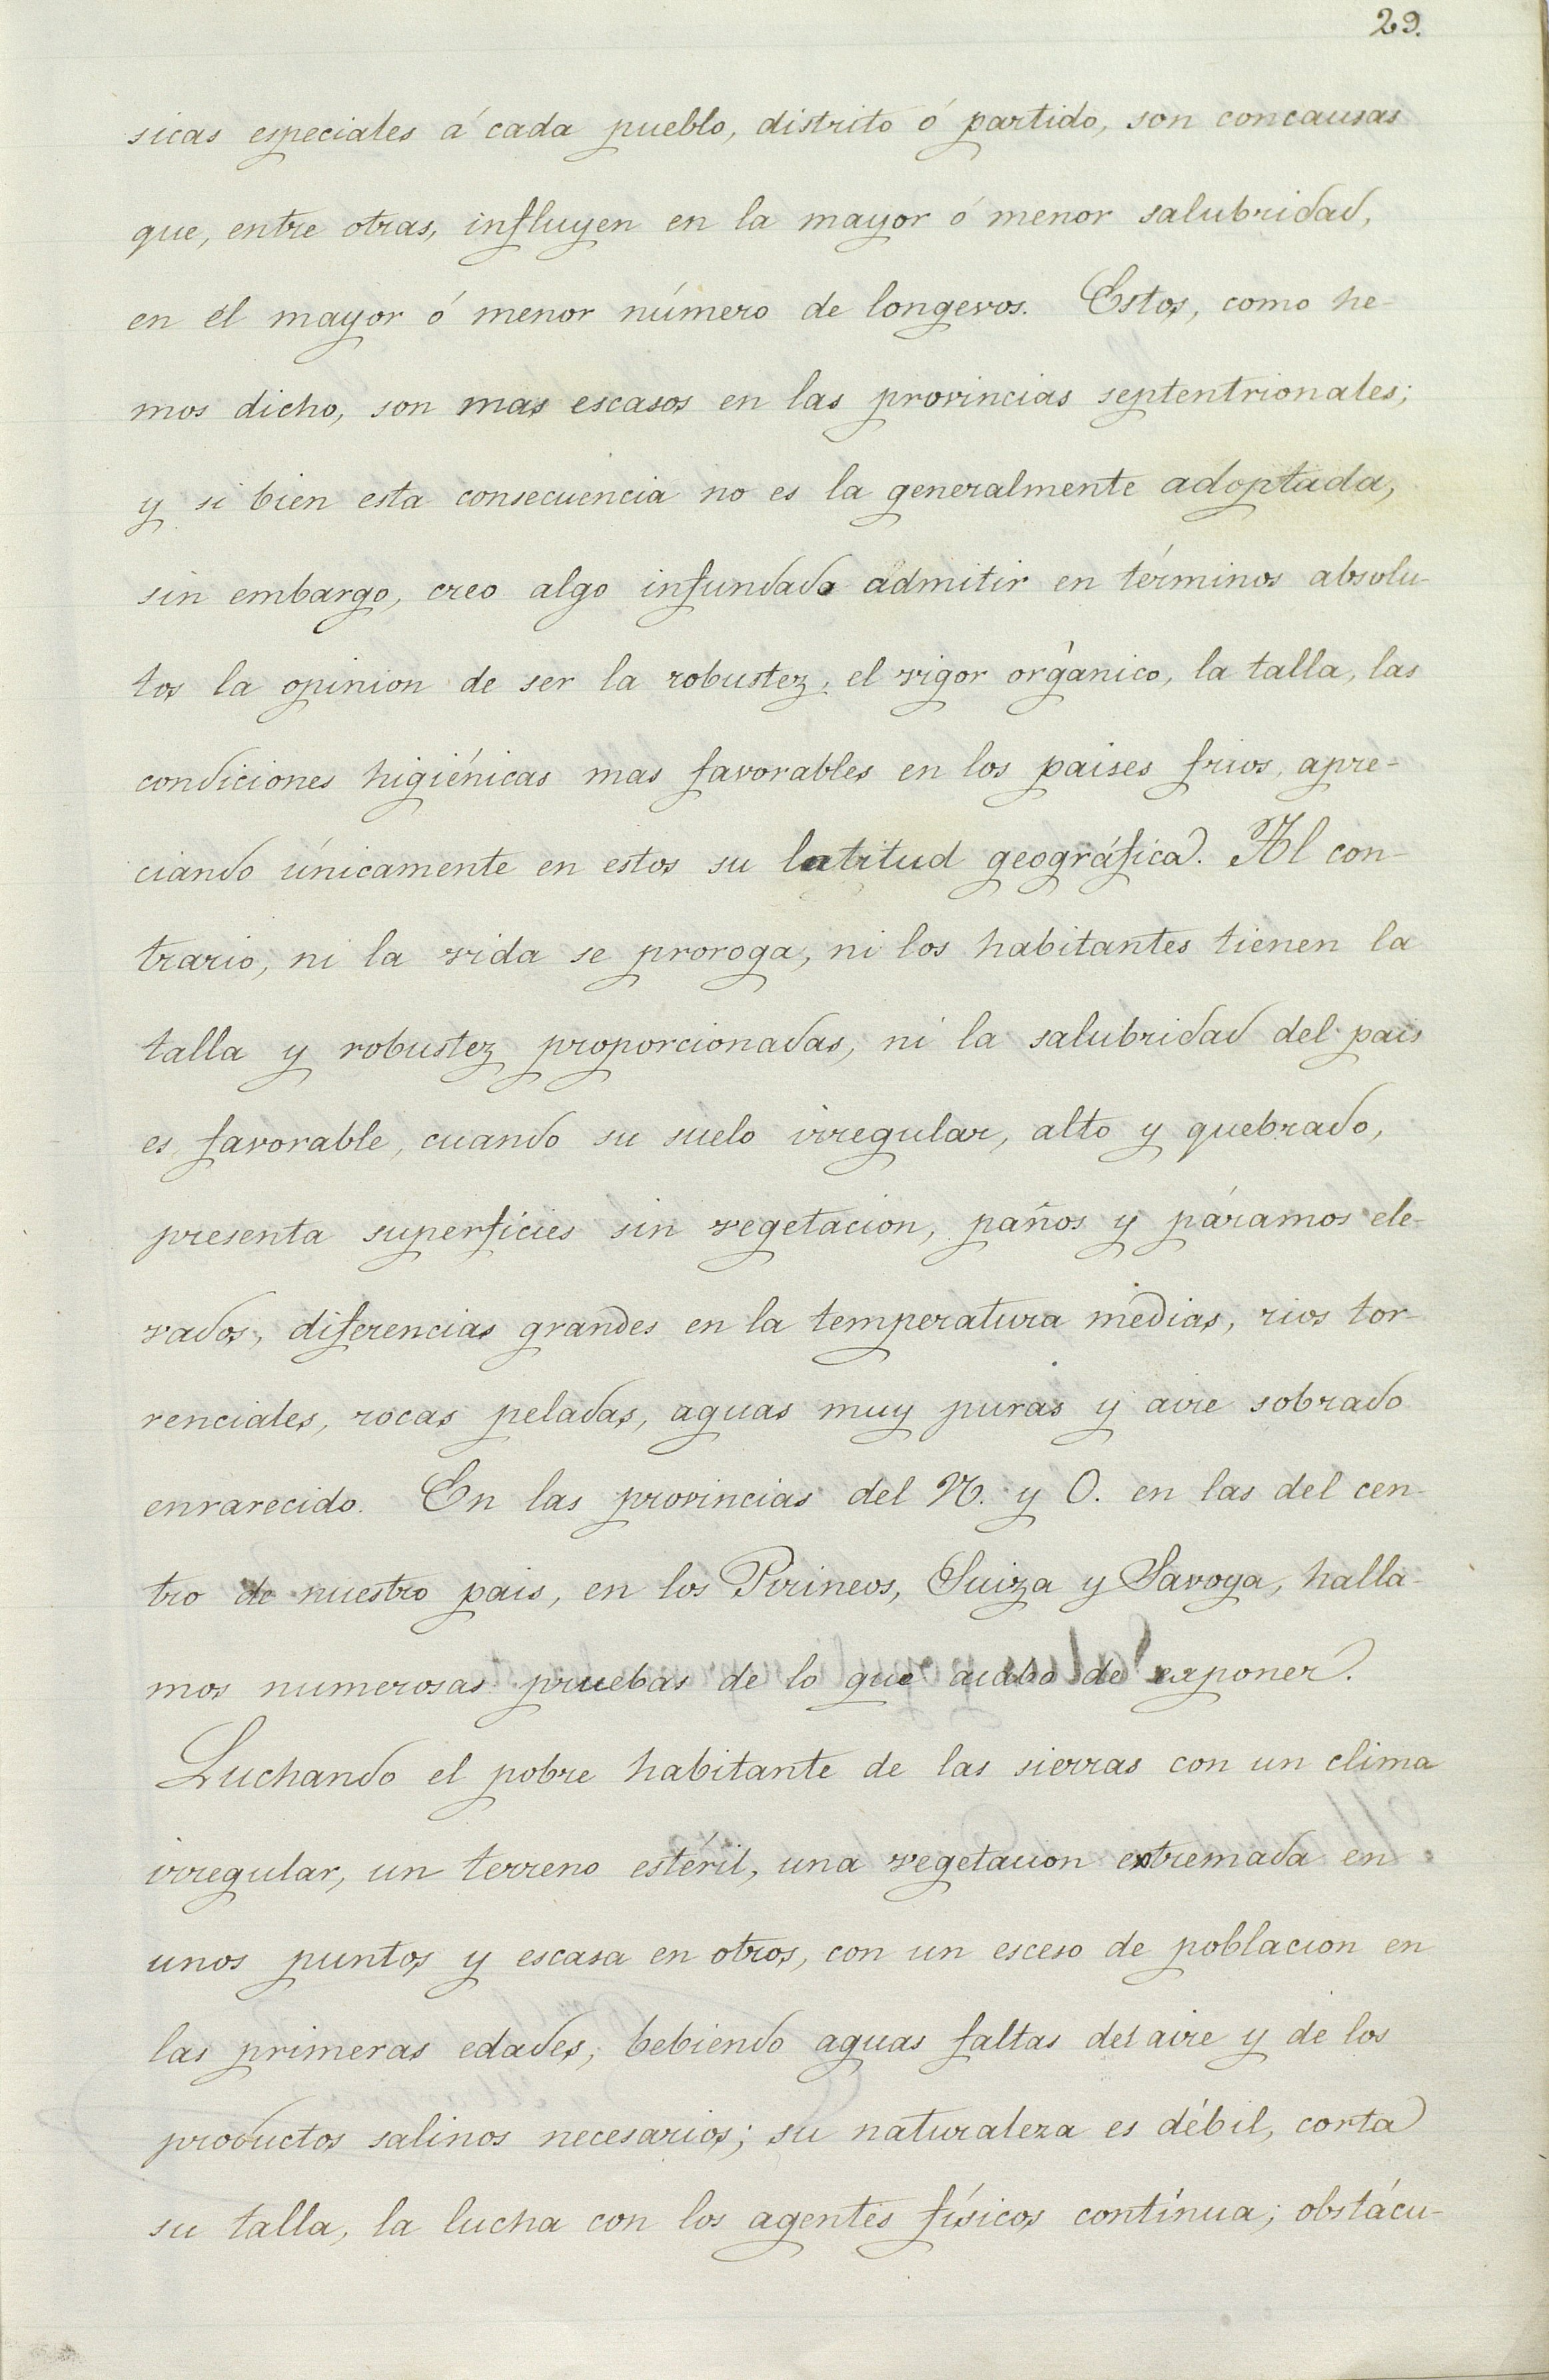 29.
sicas especiales á cada pueblo, distrito ó partido, son concausas
que, entre otras, influyen en la mayor ó menor salubridad,
en el mayor ó menor número de longevos. Estos, como he-
mos dicho, son mas escasos en las provincias septentrionales;
y si bien esta consecuencia no es la generalmente adoptada,
sin embargo, creo algo infundado admitir en términos absolu-
tos la opinion de ser la robustez, el vigor orgánico, la talla, las
condiciones higiénicas mas favorables en los paises frios, apre-
ciando únicamente en estos su latitud geográfica. Al con-
trario, ni la vida se proroga, ni los habitantes tienen la
talla y robustez proporcionadas, ni la salubridad del pais
es favorable, cuando su suelo irregular, alto y quebrado,
presenta superficies sin vegetacion, paños y páramos ele-
vados, diferencias grandes en la temperatura medias, rios tor-
renciales, rocas peladas, aguas muy puras y aire sobrado
enrarecido. En las provincias del N. y O. en las del cen-
tro de nuestro pais, en los Pirineos, Suiza y Savoya, halla-
mos numerosas pruebas de lo que acabo de exponer.
Luchando el pobre habitante de las sierras con un clima
irregular, un terreno estéril, una vegetacion extremada en
unos puntos y escasa en otros, con un esceso de poblacion en
las primeras edades, bebiendo aguas faltas del aire y de los
productos salinos necesarios; su naturaleza es débil, corta
su talla, la lucha con los agentes físicos contínua; obstácu-